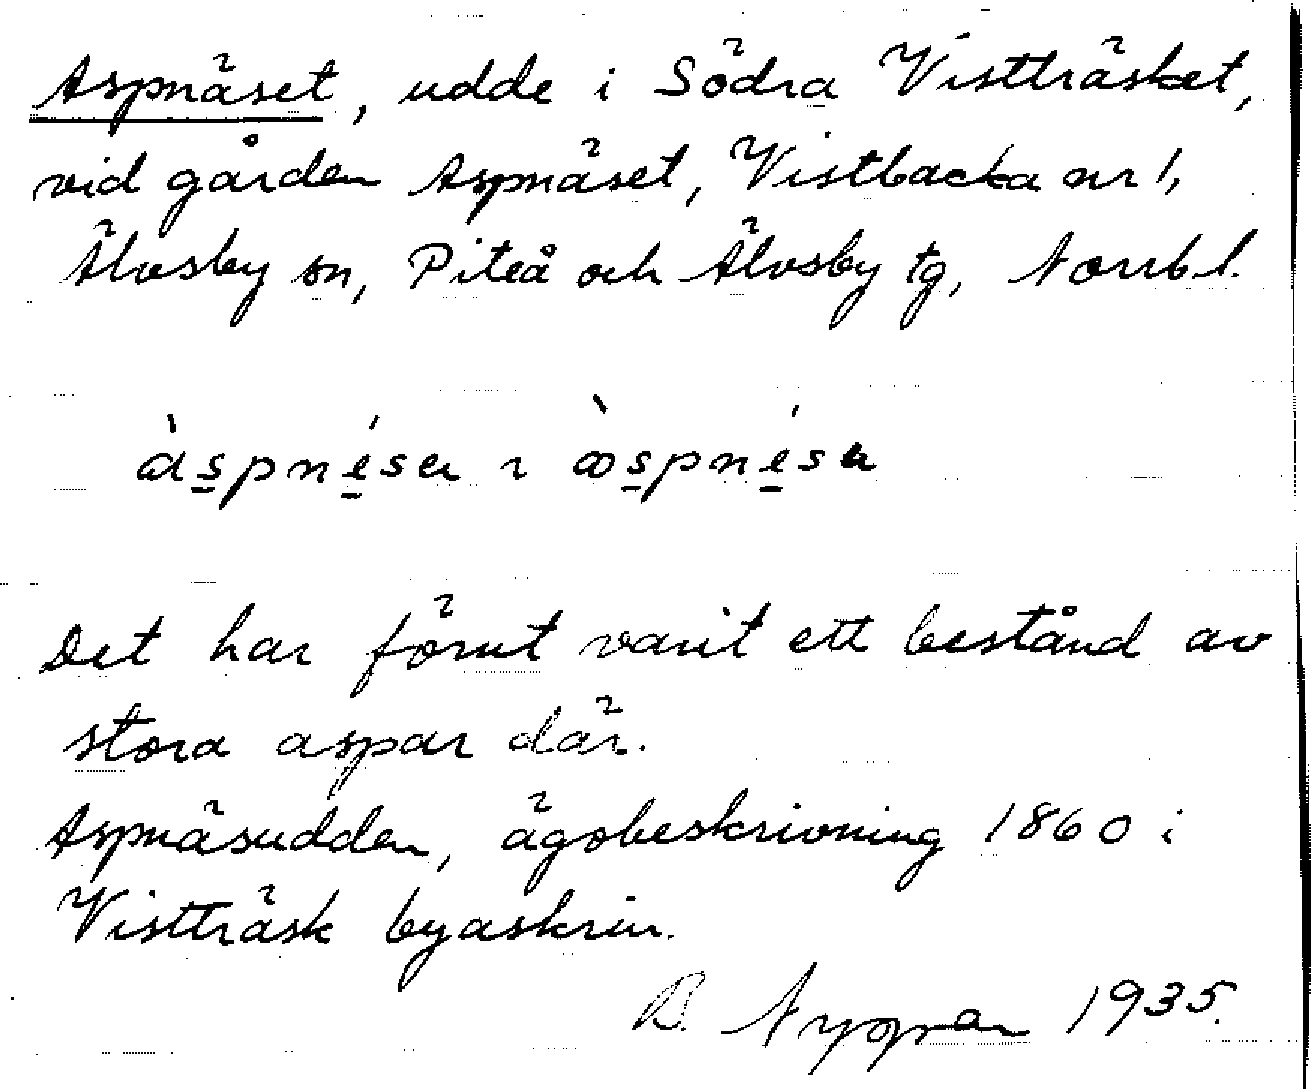 Aspnäset, udde i Södra Vistträsket,
vid gården Aspnäset, Vistbacka nr 1,
Älvsby sn, Piteå och Älvsby tg, Norrb l.
Det har förut varit ett bestånd av
stora aspar där.
Aspnäsudden, ägobeskrivning 1860 i
Vistträsk byaskrin.
B. Nygren 1935.